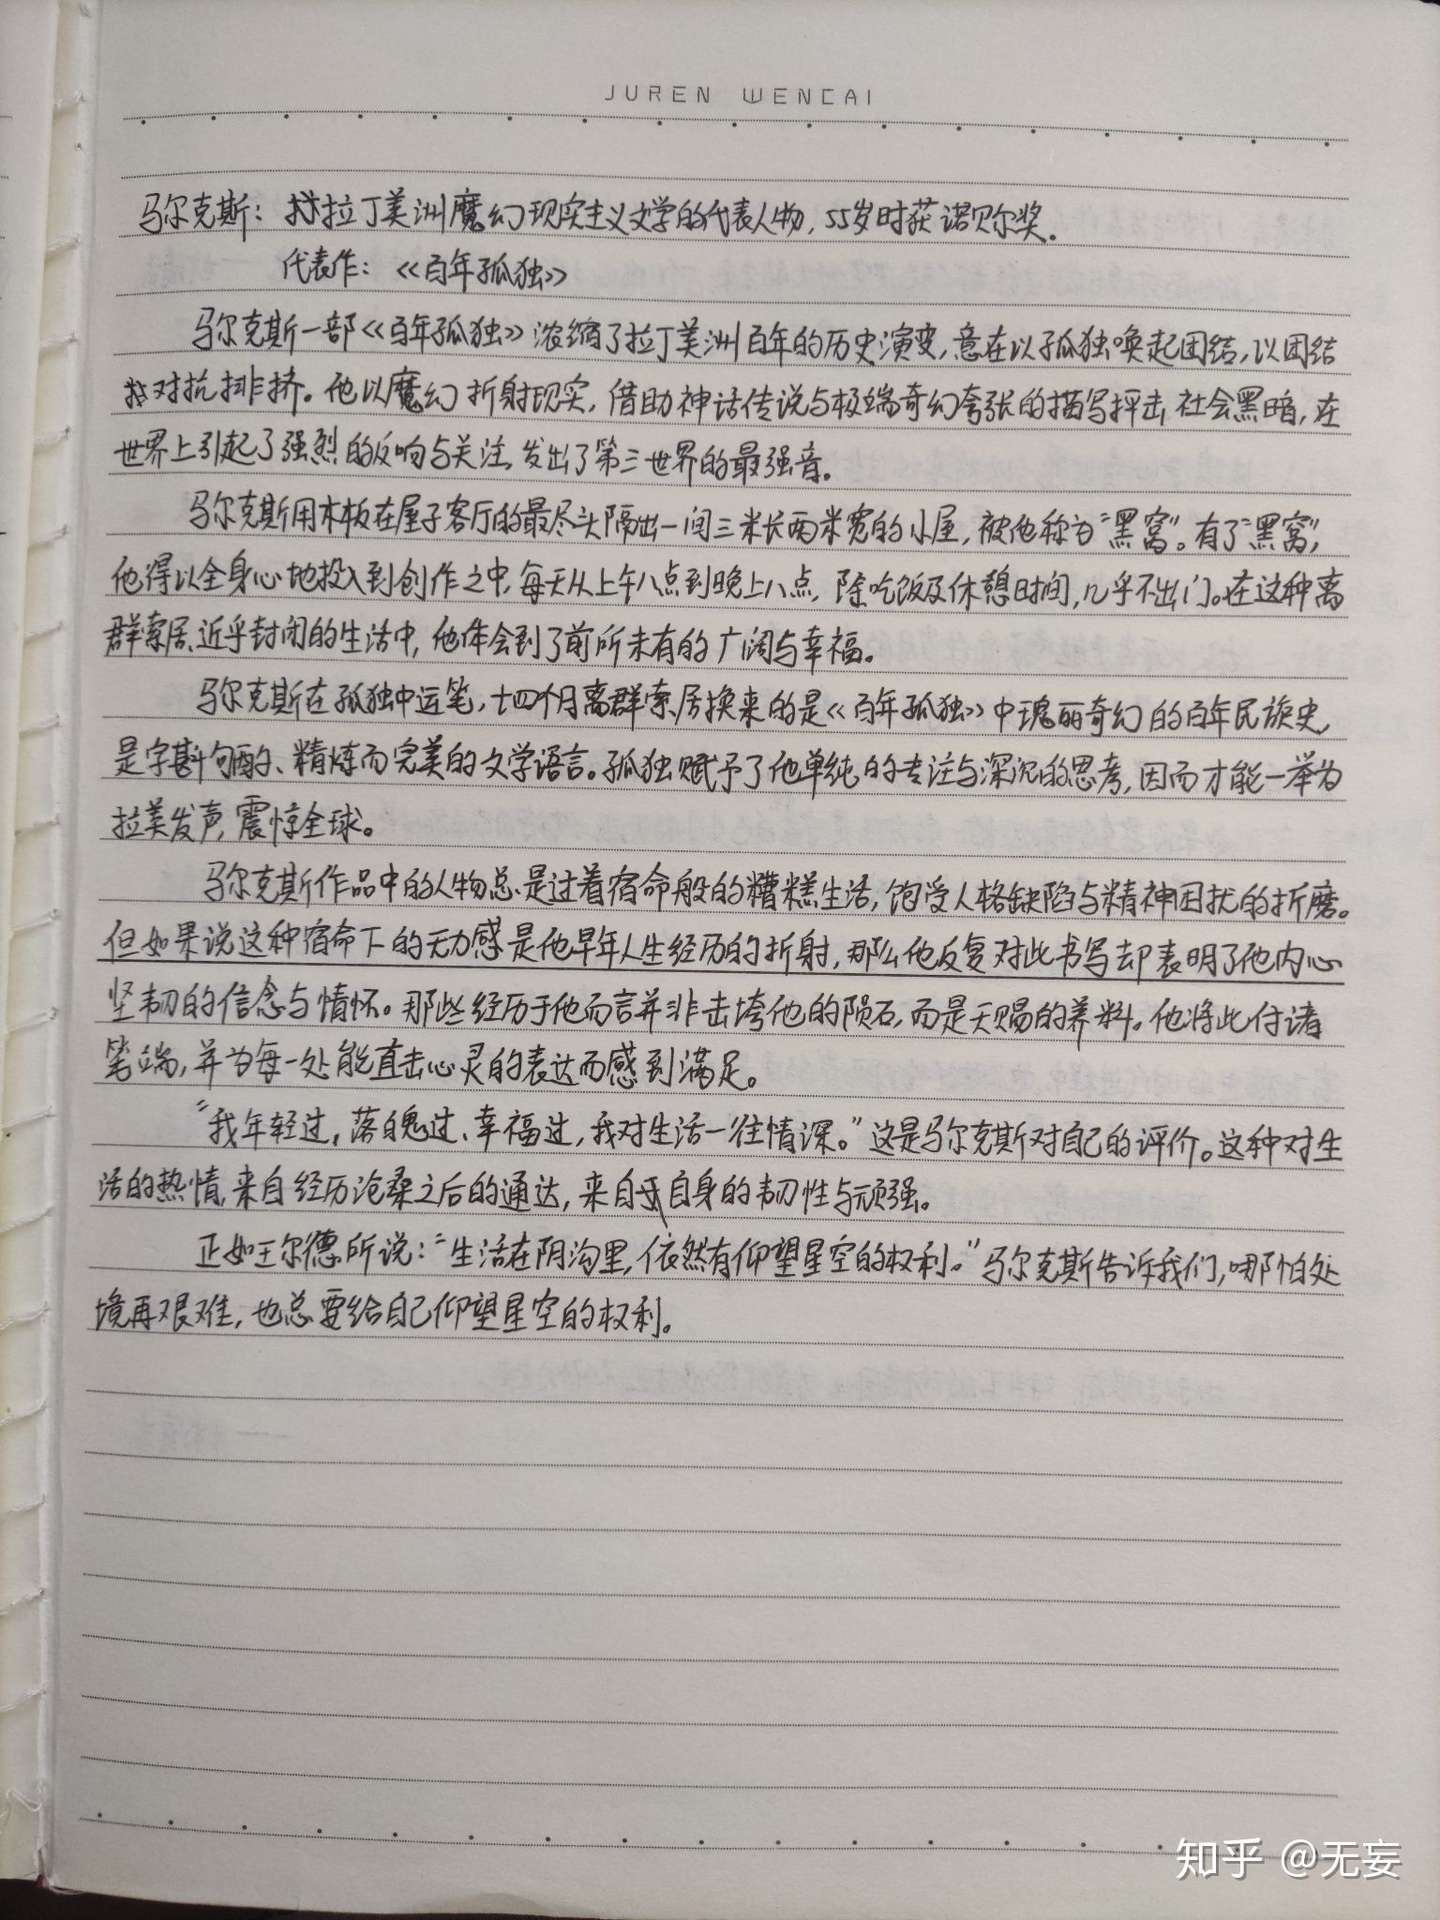 JUREN WENCAI
马尔克斯：拉丁美洲魔幻现实主义文学的代表人物，55岁时获诺贝尔奖。
代表作：《百年孤独》
马尔克斯一部《百年孤独》浓缩了拉丁美洲百年的历史演变，意在以孤独唤起团结，以团结
对抗排挤。他以魔幻折射现实，借助神话传说与极端奇幻夸张的描写抨击社会黑暗，在
世界上引起了强烈的反响与关注，发出了第三世界的最强音。
马尔克斯用木板在屋子客厅的最尽头隔出一间三米长两米宽的小屋，被他称为“黑窝”。有了“黑窝”，
他得以全身心地投入到创作之中，每天从上午八点到晚上八点，除吃饭及休憩时间，几乎不出门。在这种离
群索居、近乎封闭的生活中，他体会到了前所未有的广阔与幸福。
马尔克斯在孤独中运笔，十四个月离群索居换来的是《百年孤独》中瑰丽奇幻的百年民族史，
是字斟句酌、精炼而完美的文学语言。孤独赋予了他单纯的专注与深沉的思考，因而才能一举为
拉美发声，震惊全球。
马尔克斯作品中的人物总是过着宿命般的糟糕生活，饱受人格缺陷与精神困扰的折磨。
但如果说这种宿命下的无力感是他早年人生经历的折射，那么他反复对此书写却表明了他内心
坚韧的信念与情怀。那些经历于他而言并非击垮他的陨石，而是天赐的养料。他将此付诸
笔端，并为每一处能直击心灵的表达而感到满足。
“我年轻过，落魄过，幸福过，我对生活一往情深。”这是马尔克斯对自己的评价。这种对生
活的热情，来自经历沧桑之后的通达，来自自身的韧性与顽强。
正如王尔德所说：“生活在阴沟里，依然有仰望星空的权利。”马尔克斯告诉我们，哪怕处
境再艰难，也总要给自己仰望星空的权利。
知乎 @无妄